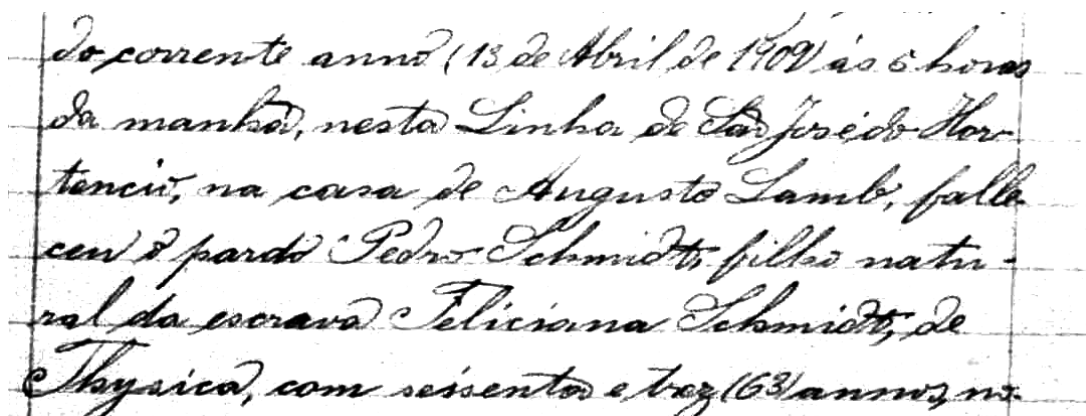 do corrente anno (13 de Abril de 1909) ás 6 horas
da manhã, nesta Linha de São José do Hor-
tencio, na casa de Augusto Lamb, falle-
ceu o pardo Pedro Schmidt, filho natu-
ral da escrava Feliciana Schmidt, de
Thysica, com sessenta e trez (63) annos, no-